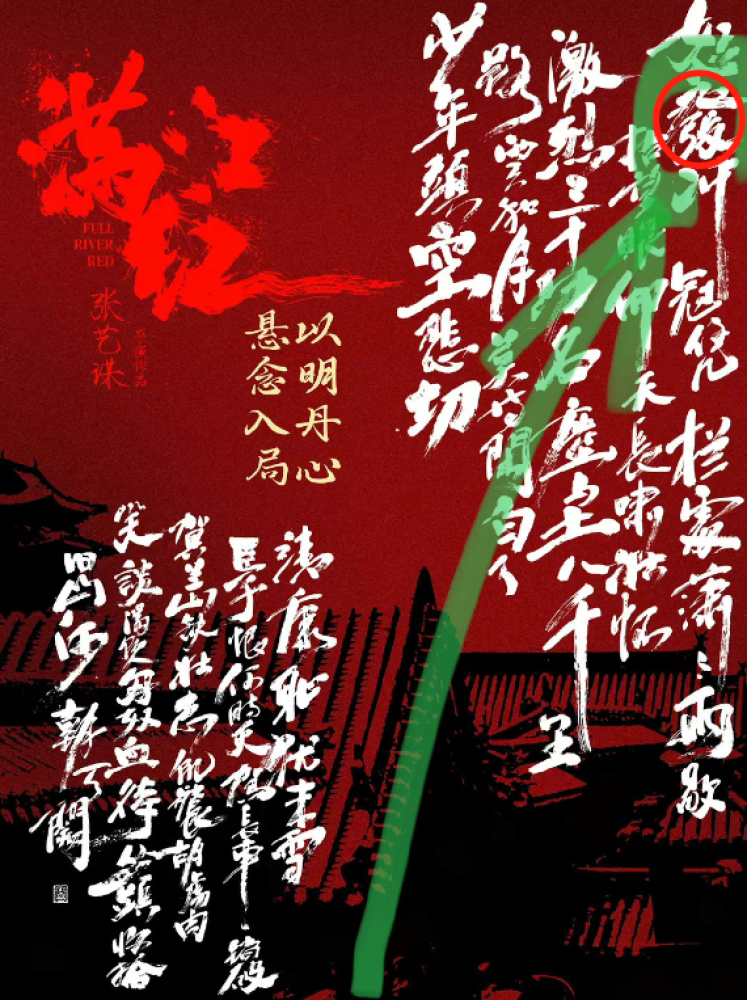 怒發冲冠凭栏處潇〻雨歇
抬望眼仰天長嘯壯怀
激烈三十功名塵土八千里
路雲和月莫等閒白了
少年頭空悲切
满江红
FULL
RIVER
RED
张艺谋
导演作品
以明丹心
悬念入局
靖康恥犹未雪
臣子恨何時灭駕長車踏破
賀兰山缺壮志飢餐胡虏肉
笑談渴饮匈奴血待從頭收拾
旧山河朝天闕